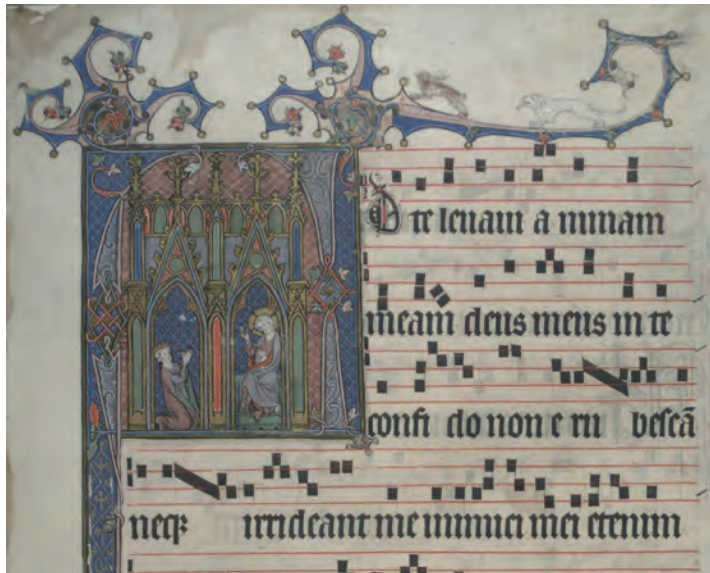 D te leuaui a nimam
meam deus meus in te
confi do non e ru bescā
neqꝫ irrideant me inimici mei etenim